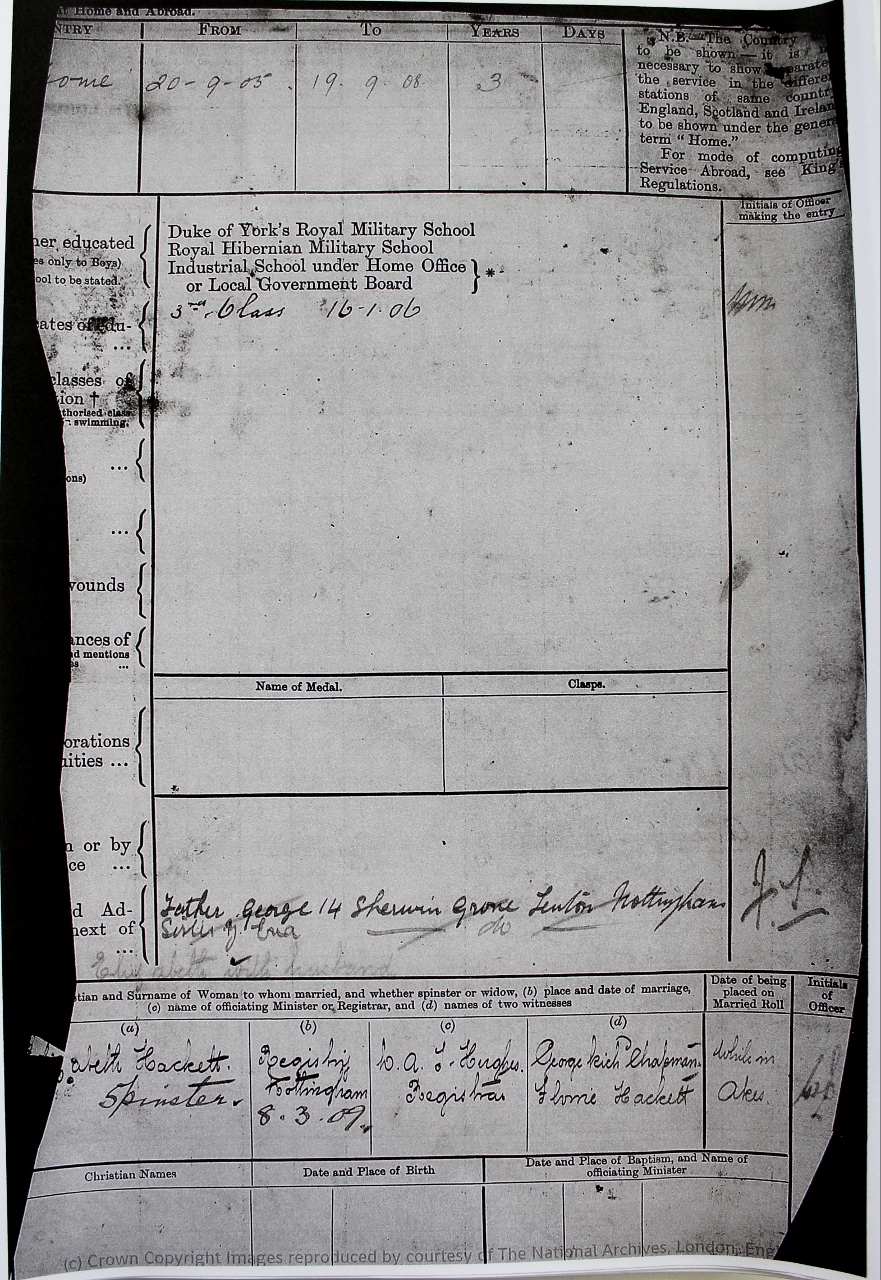 at Home and Abroad.
NTRY FROM To YEARS DAYS
ome 20-9-05 19.9.08 3
N.B.—The Country
to be shown—it is
necessary to show
the service in the
stations of same countr
England, Scotland and Irelan
to be shown under the gener
term "Home."
For mode of computing
Service Abroad, see King's
Regulations.
Initials of Officer
making the entry
her educated
es only to Boys)
ool to be stated.
Duke of York's Royal Military School
Royal Hibernian Military School
Industrial School under Home Office
or Local Government Board } *
cates of edu-
...
3rd Class 16-1-06
classes of
tion †
thorised class
swimming.
...
ons)
...
wounds
ances of
d mentions
es ...
Name of Medal. Clasps.
orations
uities ...
n or by
ce ...
d Ad-
next of
...
Father George 14 Sherwin Grove Lenton Nottingham
Sister do
J.S.
Elizabeth with husband
stian and Surname of Woman to whom married, and whether spinster or widow, (b) place and date of marriage,
(c) name of officiating Minister or Registrar, and (d) names of two witnesses
Date of being
placed on
Married Roll
Initials
of
Officer
(a) (b) (c) (d)
abeth Hackett.
Spinster.
Registry
Nottingham
8.3.09.
Hughes.
Registrar
George Chapman
Florrie Hackett
while in
Christian Names
Date and Place of Birth
Date and Place of Baptism, and Name of
officiating Minister
(c) Crown Copyright Images reproduced by courtesy of The National Archives, London, Eng